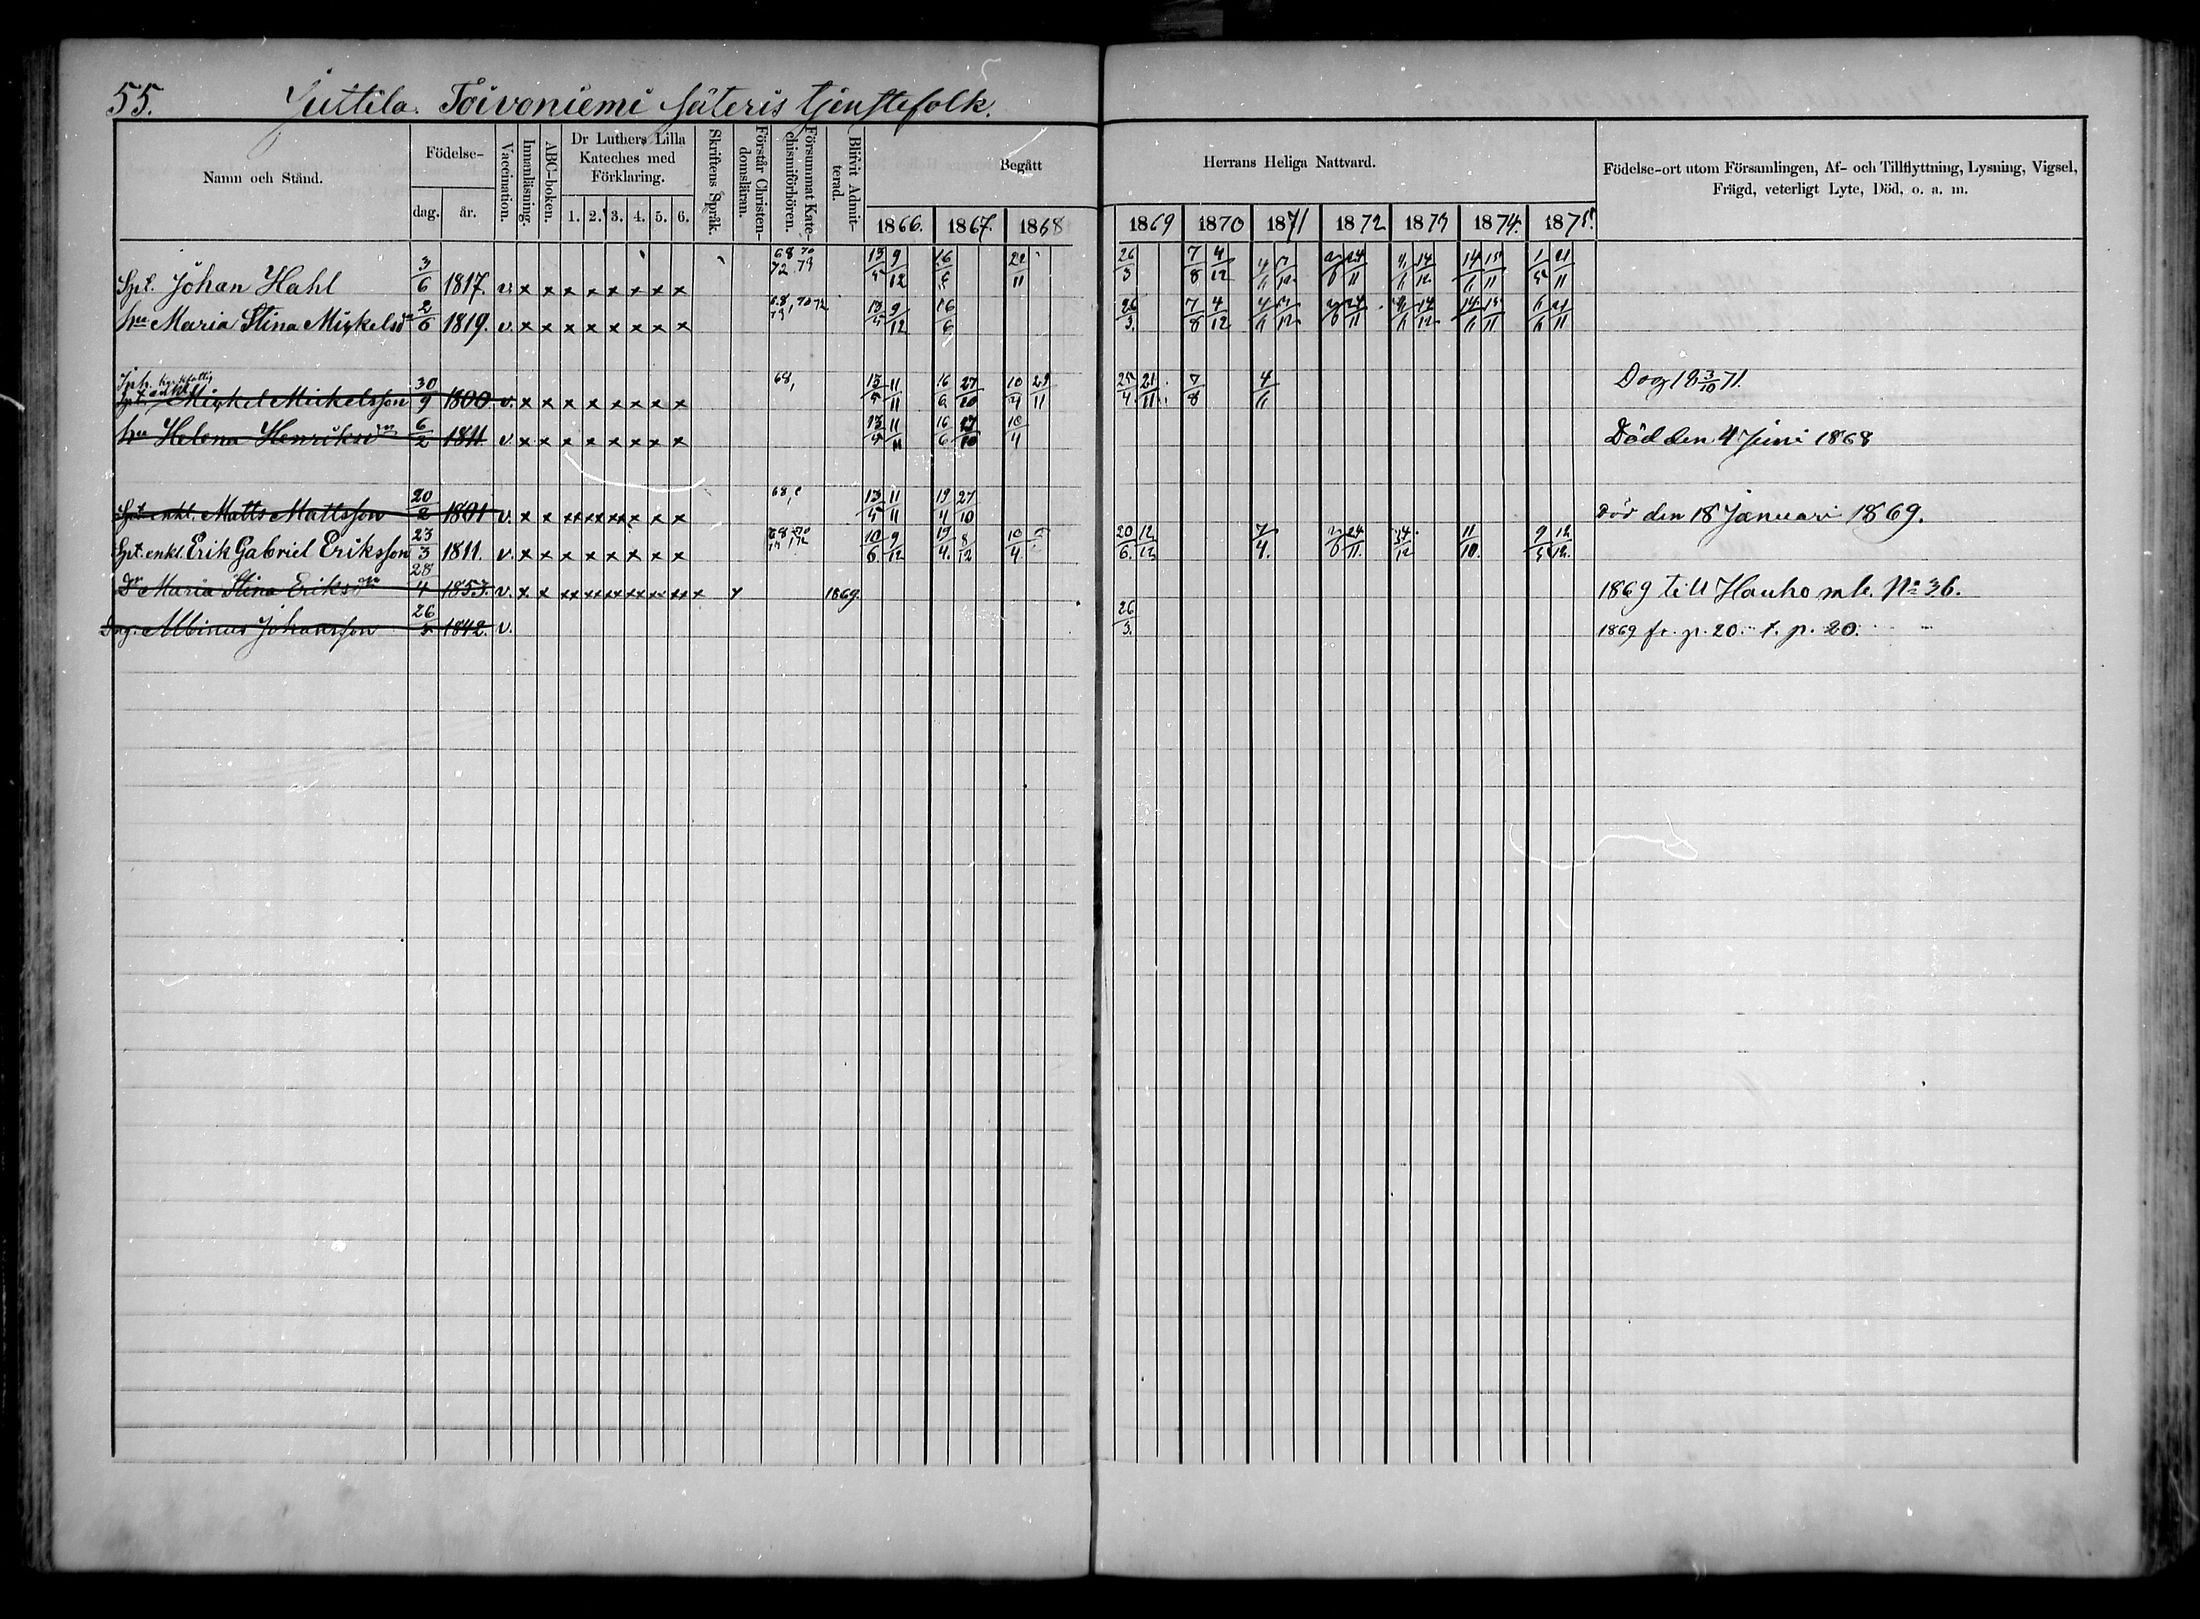 55. Juttila. Toivoniemi säteris tjenstefolk.
Namn och Stånd.
Födelse-
dag. år.
Vaccination.
Innanläsning.
ABC-boken.
Dr Luthers Lilla Kateches med Förklaring.
1. 2. 3. 4. 5. 6.
Skriftens Språk.
Förstår Christendomsläran.
Försummat Katechismiförhören.
Blifvit Admitterad.
Begått Herrans Heliga Nattvard.
1866. 1867. 1868 1869 1870 1871 1872 1873 1874. 1875.
Födelse-ort utom Församlingen, Af- och Tillflyttning, Lysning, Vigsel,
Frägd, veterligt Lyte, Död, o. a. m.
Spt. Johan Hahl 3/6 1817. v. x x x x x x x x 68 70 72 73 9/12 16/6 26/3 7/8 4/12 14/11 15/11 21/11
hu Maria Stina Mickelsdr 2/6 1819. v. x x x x x x x x 9/12 16/6 26/3. 7/8 4/12 21/11
enkl. Mickel Mickelsson 30/9 1800. v. x x x x x x x x 68, 11/11 16/6 27/10 10/4 29/11 21/11 7/8 Dog 18 3/10 71.
hu Helena Henriksdr 6/2 1811 v. x x x x x x x x 11/11 16/6 27/10 10/4 Död den 4 Juni 1868
Spt. enkl. Matts Mattsson 20/2 1801 v. x x xx xx xx x x x 68, 11/11 19/4 27/10 Död den 18 Januari 1869.
Spt. enkl. Erik Gabriel Eriksson 23/3 1811. v. x x x x x x x x 10/6 9/12 19/4. 8/12 10/4 20/6. 12/12 24/11. 11/10.
Dr Maria Stina Eriksdr 28/4 1853. v. x x xx xx xx xx xx xx x x 1869. 1869 till Hauho m b. No 36.
Dng. Albinus Johansson 26/5 1842. v. 26/3. 1869 fr. p. 20. t. p. 20.